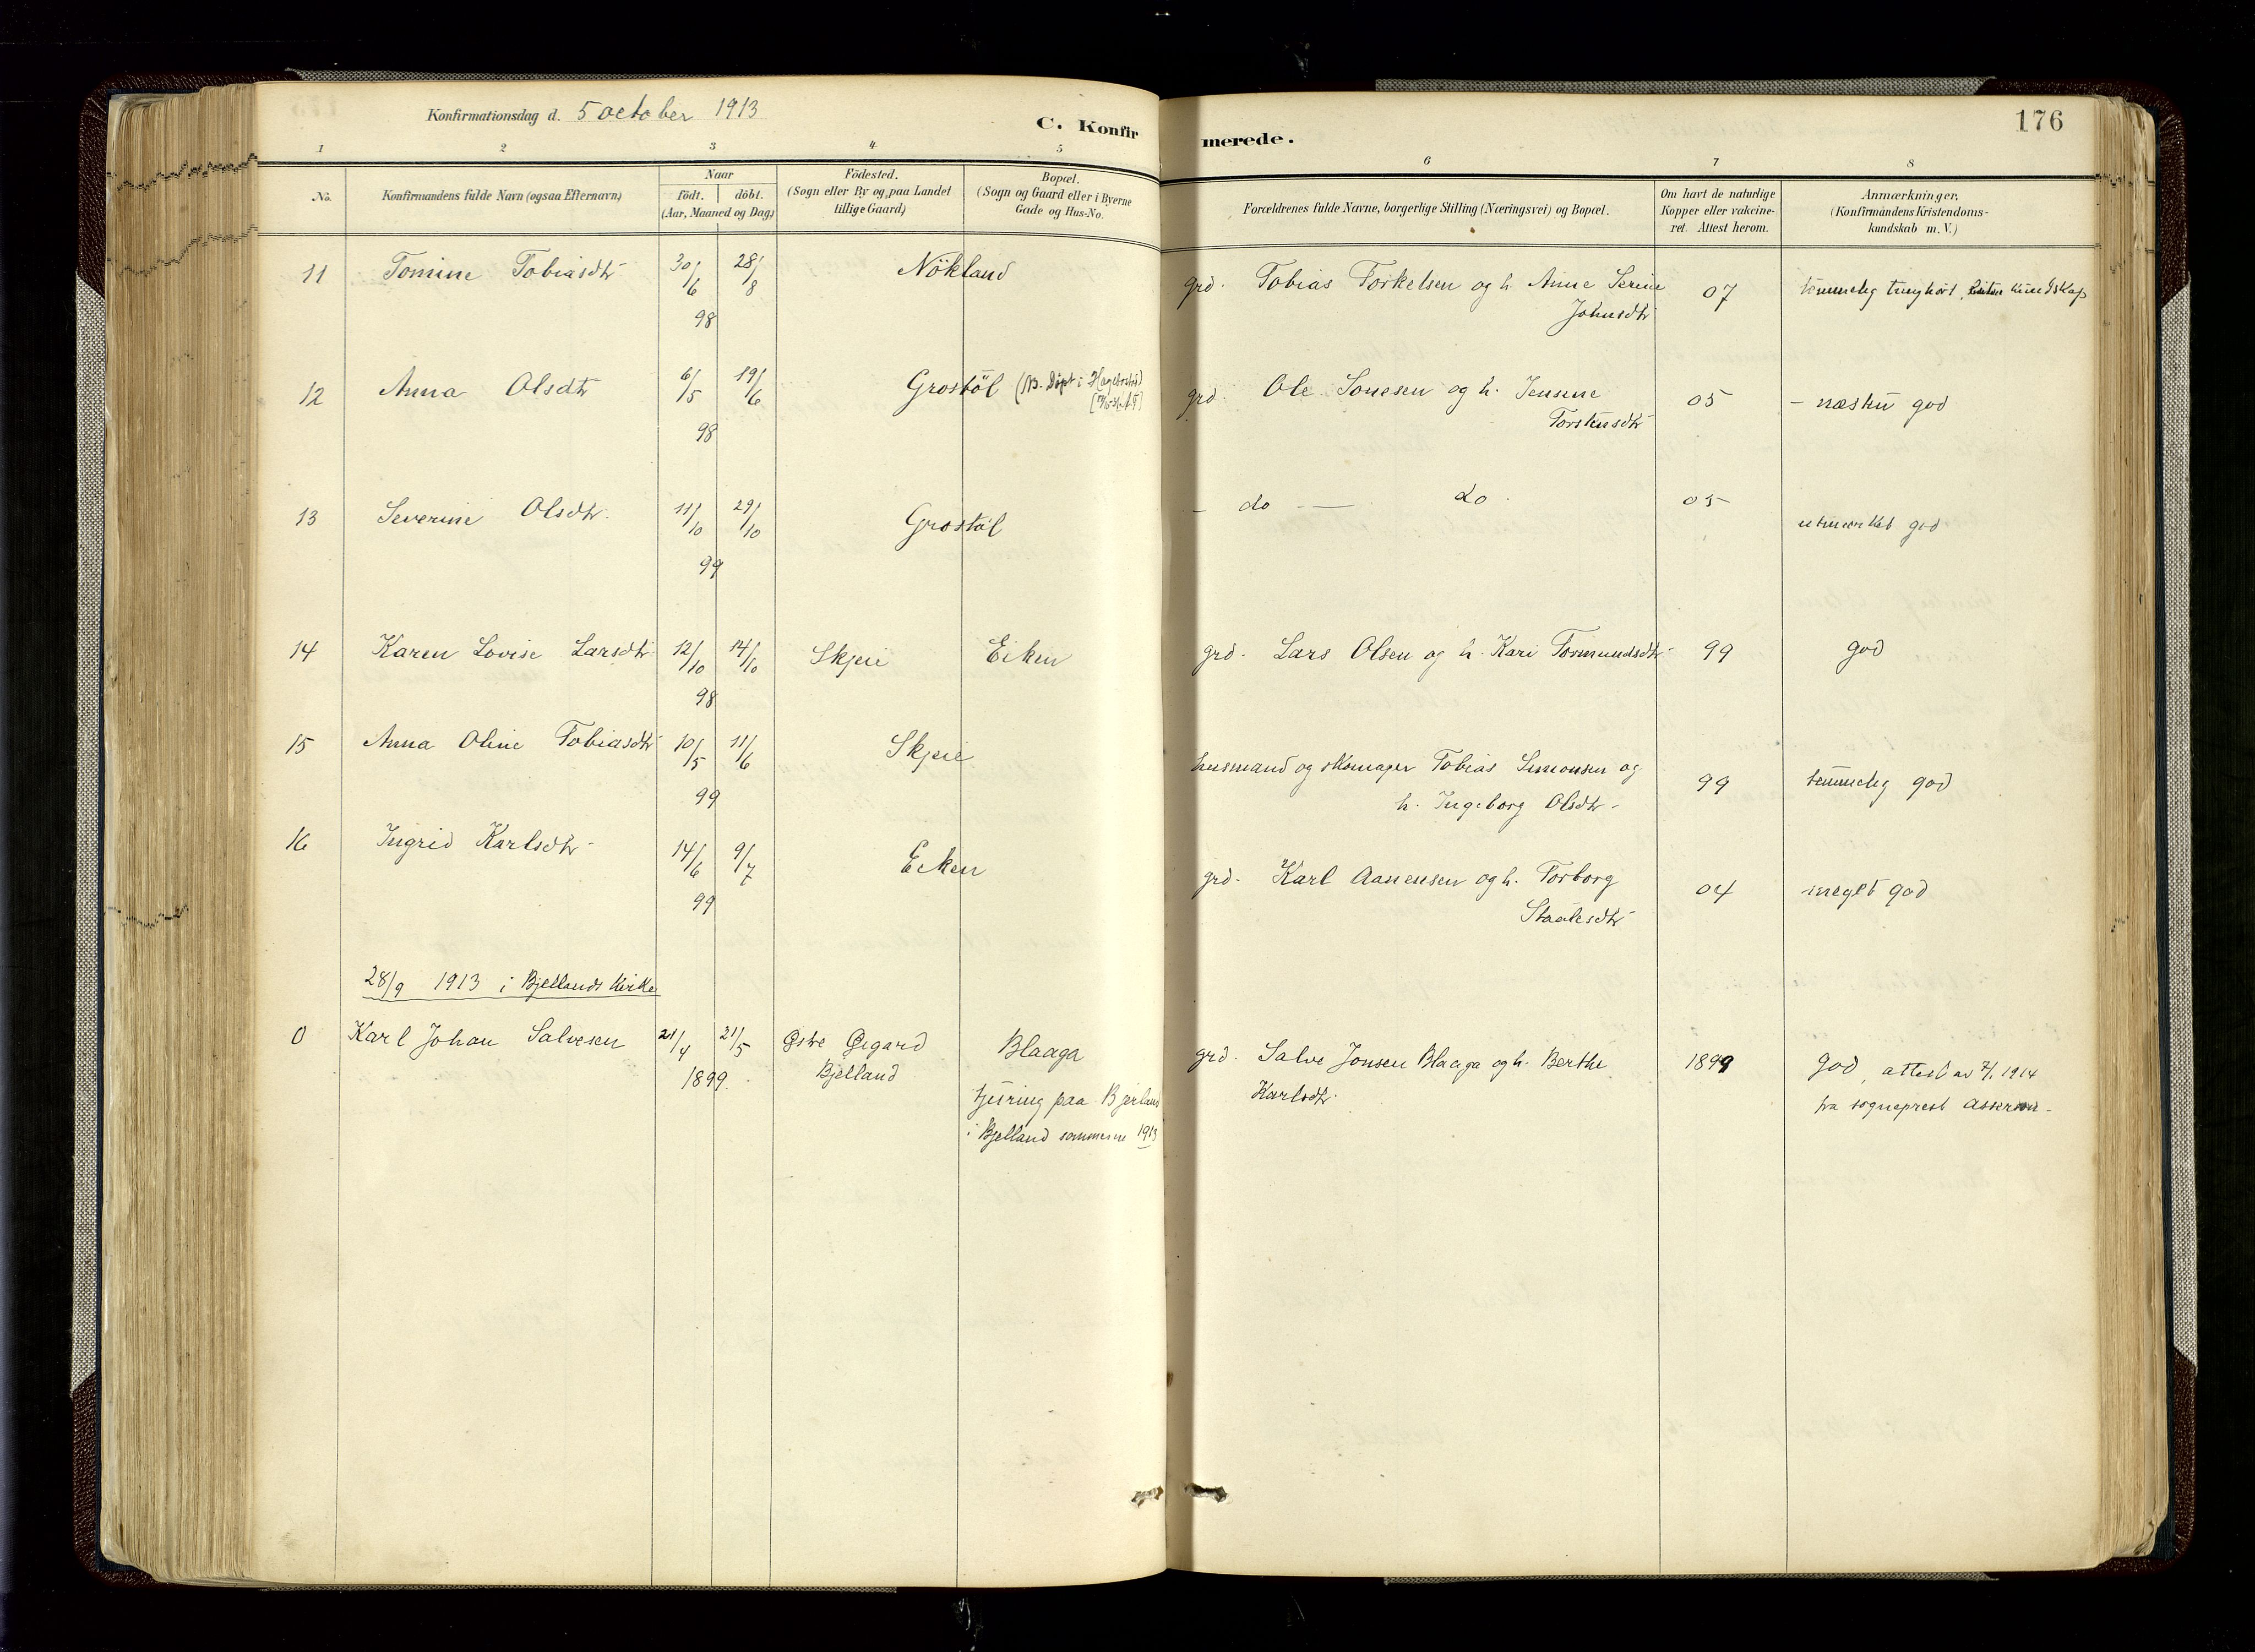 Konfirmationsdag d. 5 october 1913
C. Konfirmerede.
176
1 2 3 4 5 6 7 8
No.
Konfirmandens fulde Navn (ogsaa Efternavn)
Naar
födt. döbt.
(Aar, Maaned og Dag)
Födested.
(Sogn eller By og, paa Landet
tillige Gaard)
Bopæl.
(Sogn og Gaard eller i Byerne
Gade og Hus-No.
Forældrenes fulde Navne, borgerlige Stilling (Næringsvei) og Bopæl.
Om havt de naturlige
Kopper eller vakcine-
ret. Attest herom.
Anmærkninger.
(Konfirmandens Kristendoms-
kundskab m. V.)
11 Tomine Tobiasdtr 30/6 28/8 Nökland grd. Tobias Torkelsen og h. Anne Serine 07 temmelig tunghørt, liten kundskap
98 Johnsdtr
12 Anna Olsdtr 6/5 19/6 Grostöl (NB. Döpt i Hægebostad) grd. Ole Sonesen og h. Jensine 05 - næsten god
98 Torstensdtr
13 Severine Olsdtr. 11/10 29/10 Grostöl - do — do. 05 utmærket god
99
14 Karen Lovise Larsdtr. 12/10 14/10 Skjeie Eiken grd. Lars Olsen og h. Kari Tormundsdtr 99 god
98
15 Anna Oline Tobiasdtr 10/5 11/6 Skjeie husmand og skomager Tobias Simonsen og 99 temmelig god
99 h. Ingeborg Olsdtr.
16 Ingrid Karlsdtr 14/6 9/7 Eiken grd. Karl Aanensen og h. Torborg 04 meget god
99 Staalesdtr
28/9 1913 i Bjellands kirke
0 Karl Johan Salvesen 21/4 21/5 Østre Øigard Blaaga grd. Salve Jonsen Blaaga og h. Berthe 1899 God, attest av 7/1 1914
1899. Bjelland Karlsdtr. fra sogneprest Asserson.
gjæring paa Bjerland
i Bjelland sommeren 1913